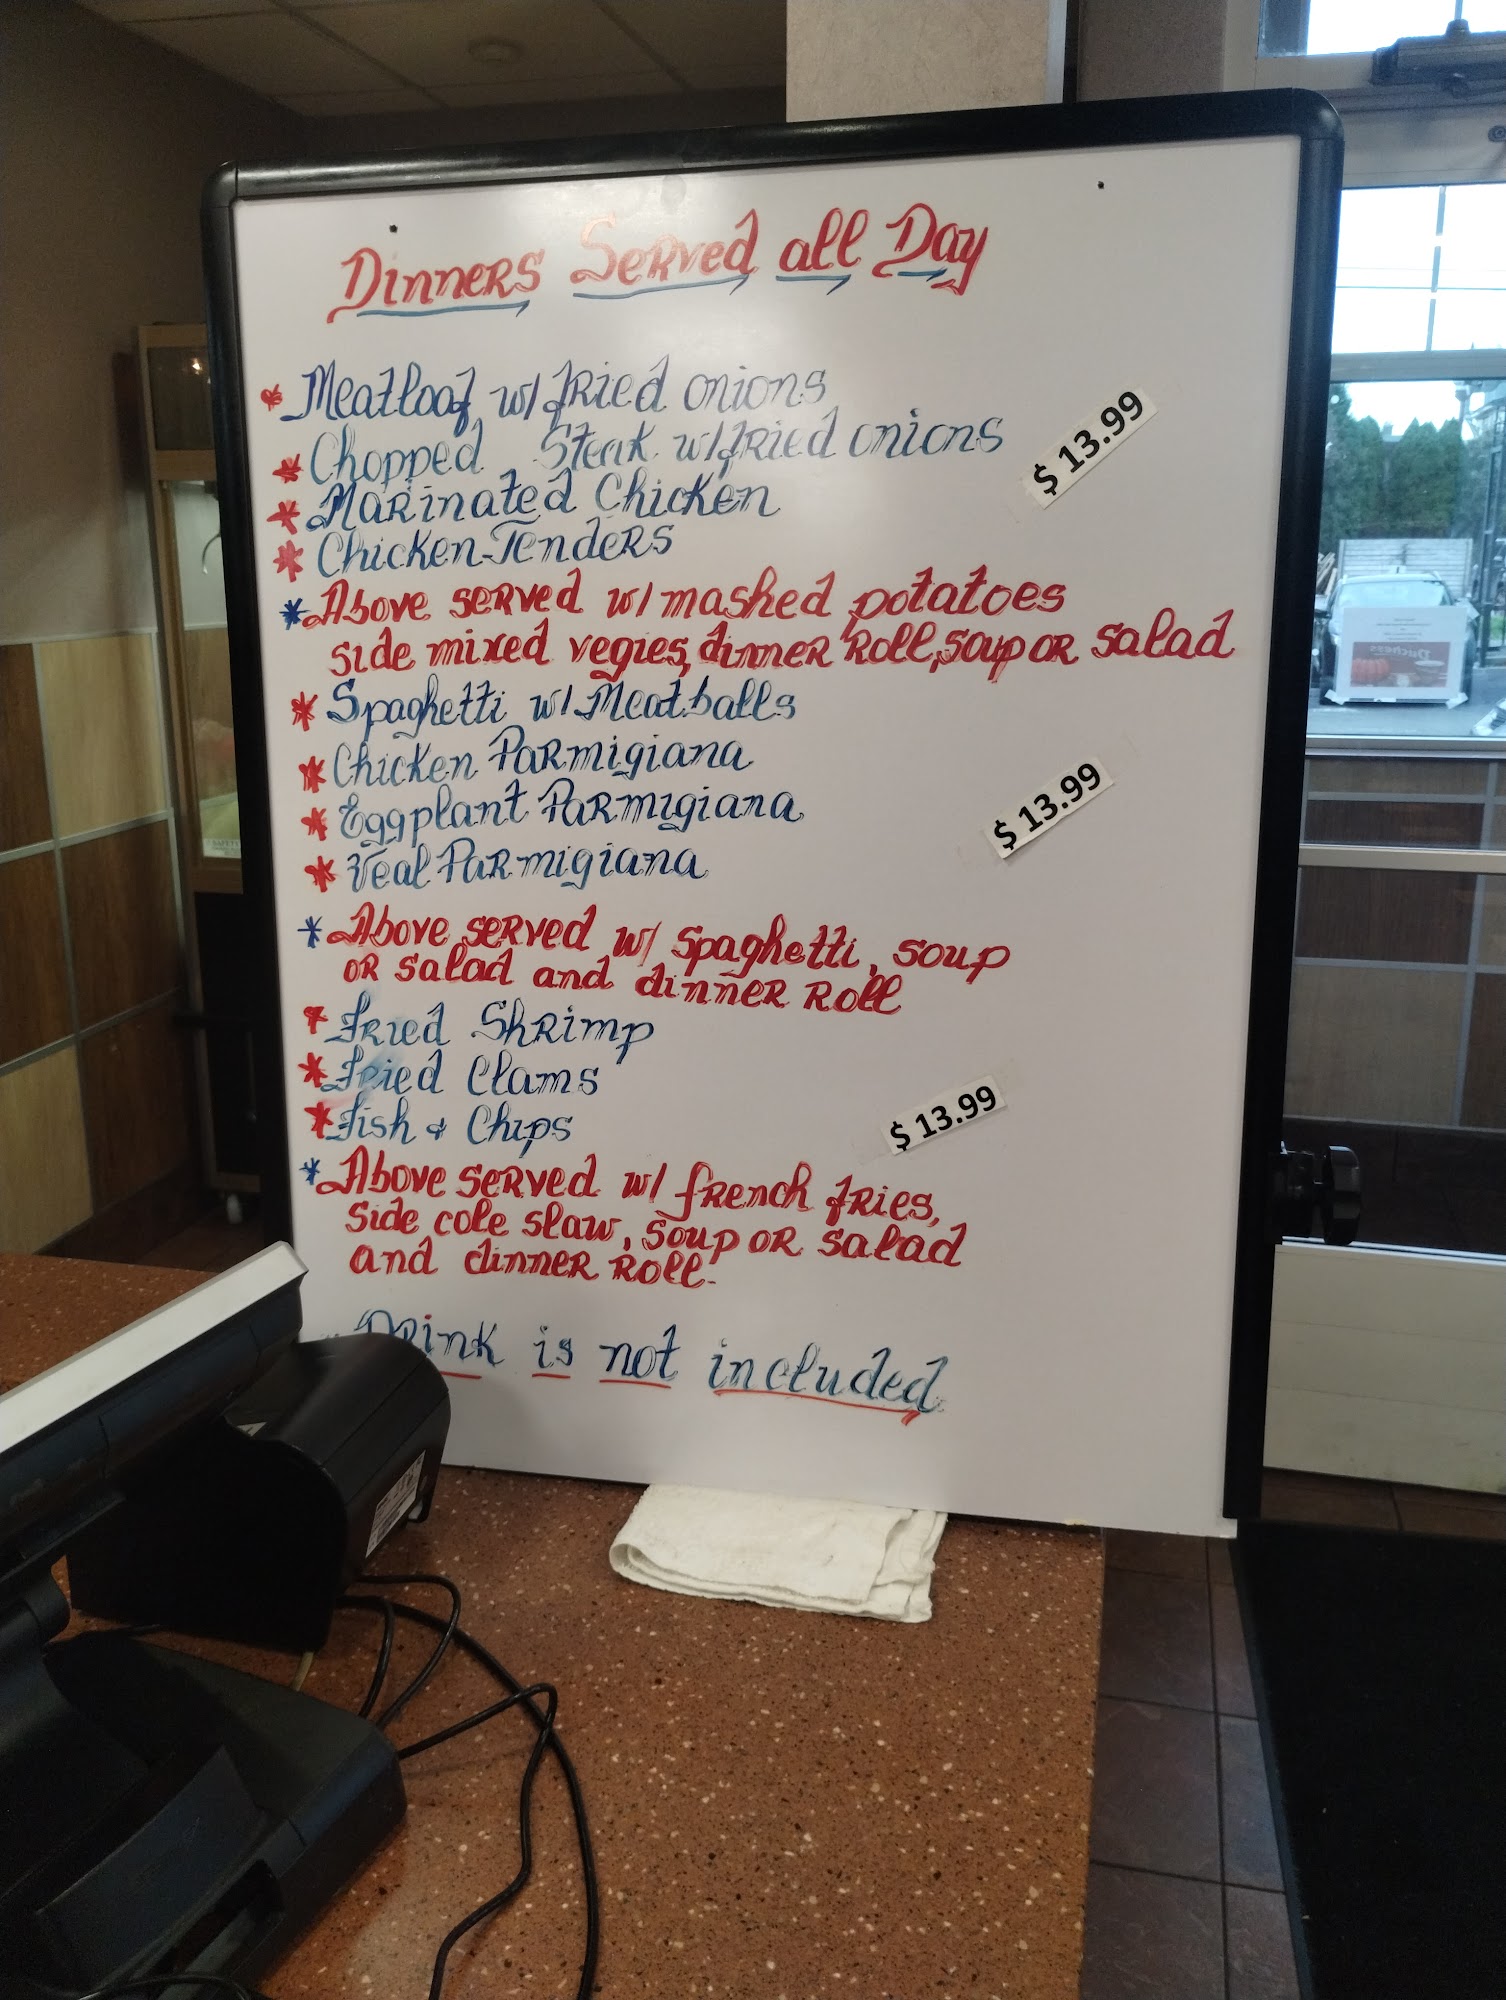 Dinners Served all Day
* Meatloaf w/ fried onions
* Chopped Steak w/ fried onions
$ 13.99
* Marinated Chicken
* Chicken Tenders
* Above served w/ mashed potatoes
side mixed vegies, dinner roll, soup or salad
* Spaghetti w/ Meatballs
* Chicken Parmigiana
$ 13.99
* Eggplant Parmigiana
* Veal Parmigiana
* Above served w/ spaghetti, soup
or salad and dinner roll
* Fried Shrimp
* Fried Clams
* Fish & Chips
$ 13.99
* Above served w/ french fries,
side cole slaw, soup or salad
and dinner roll.
Drink is not included